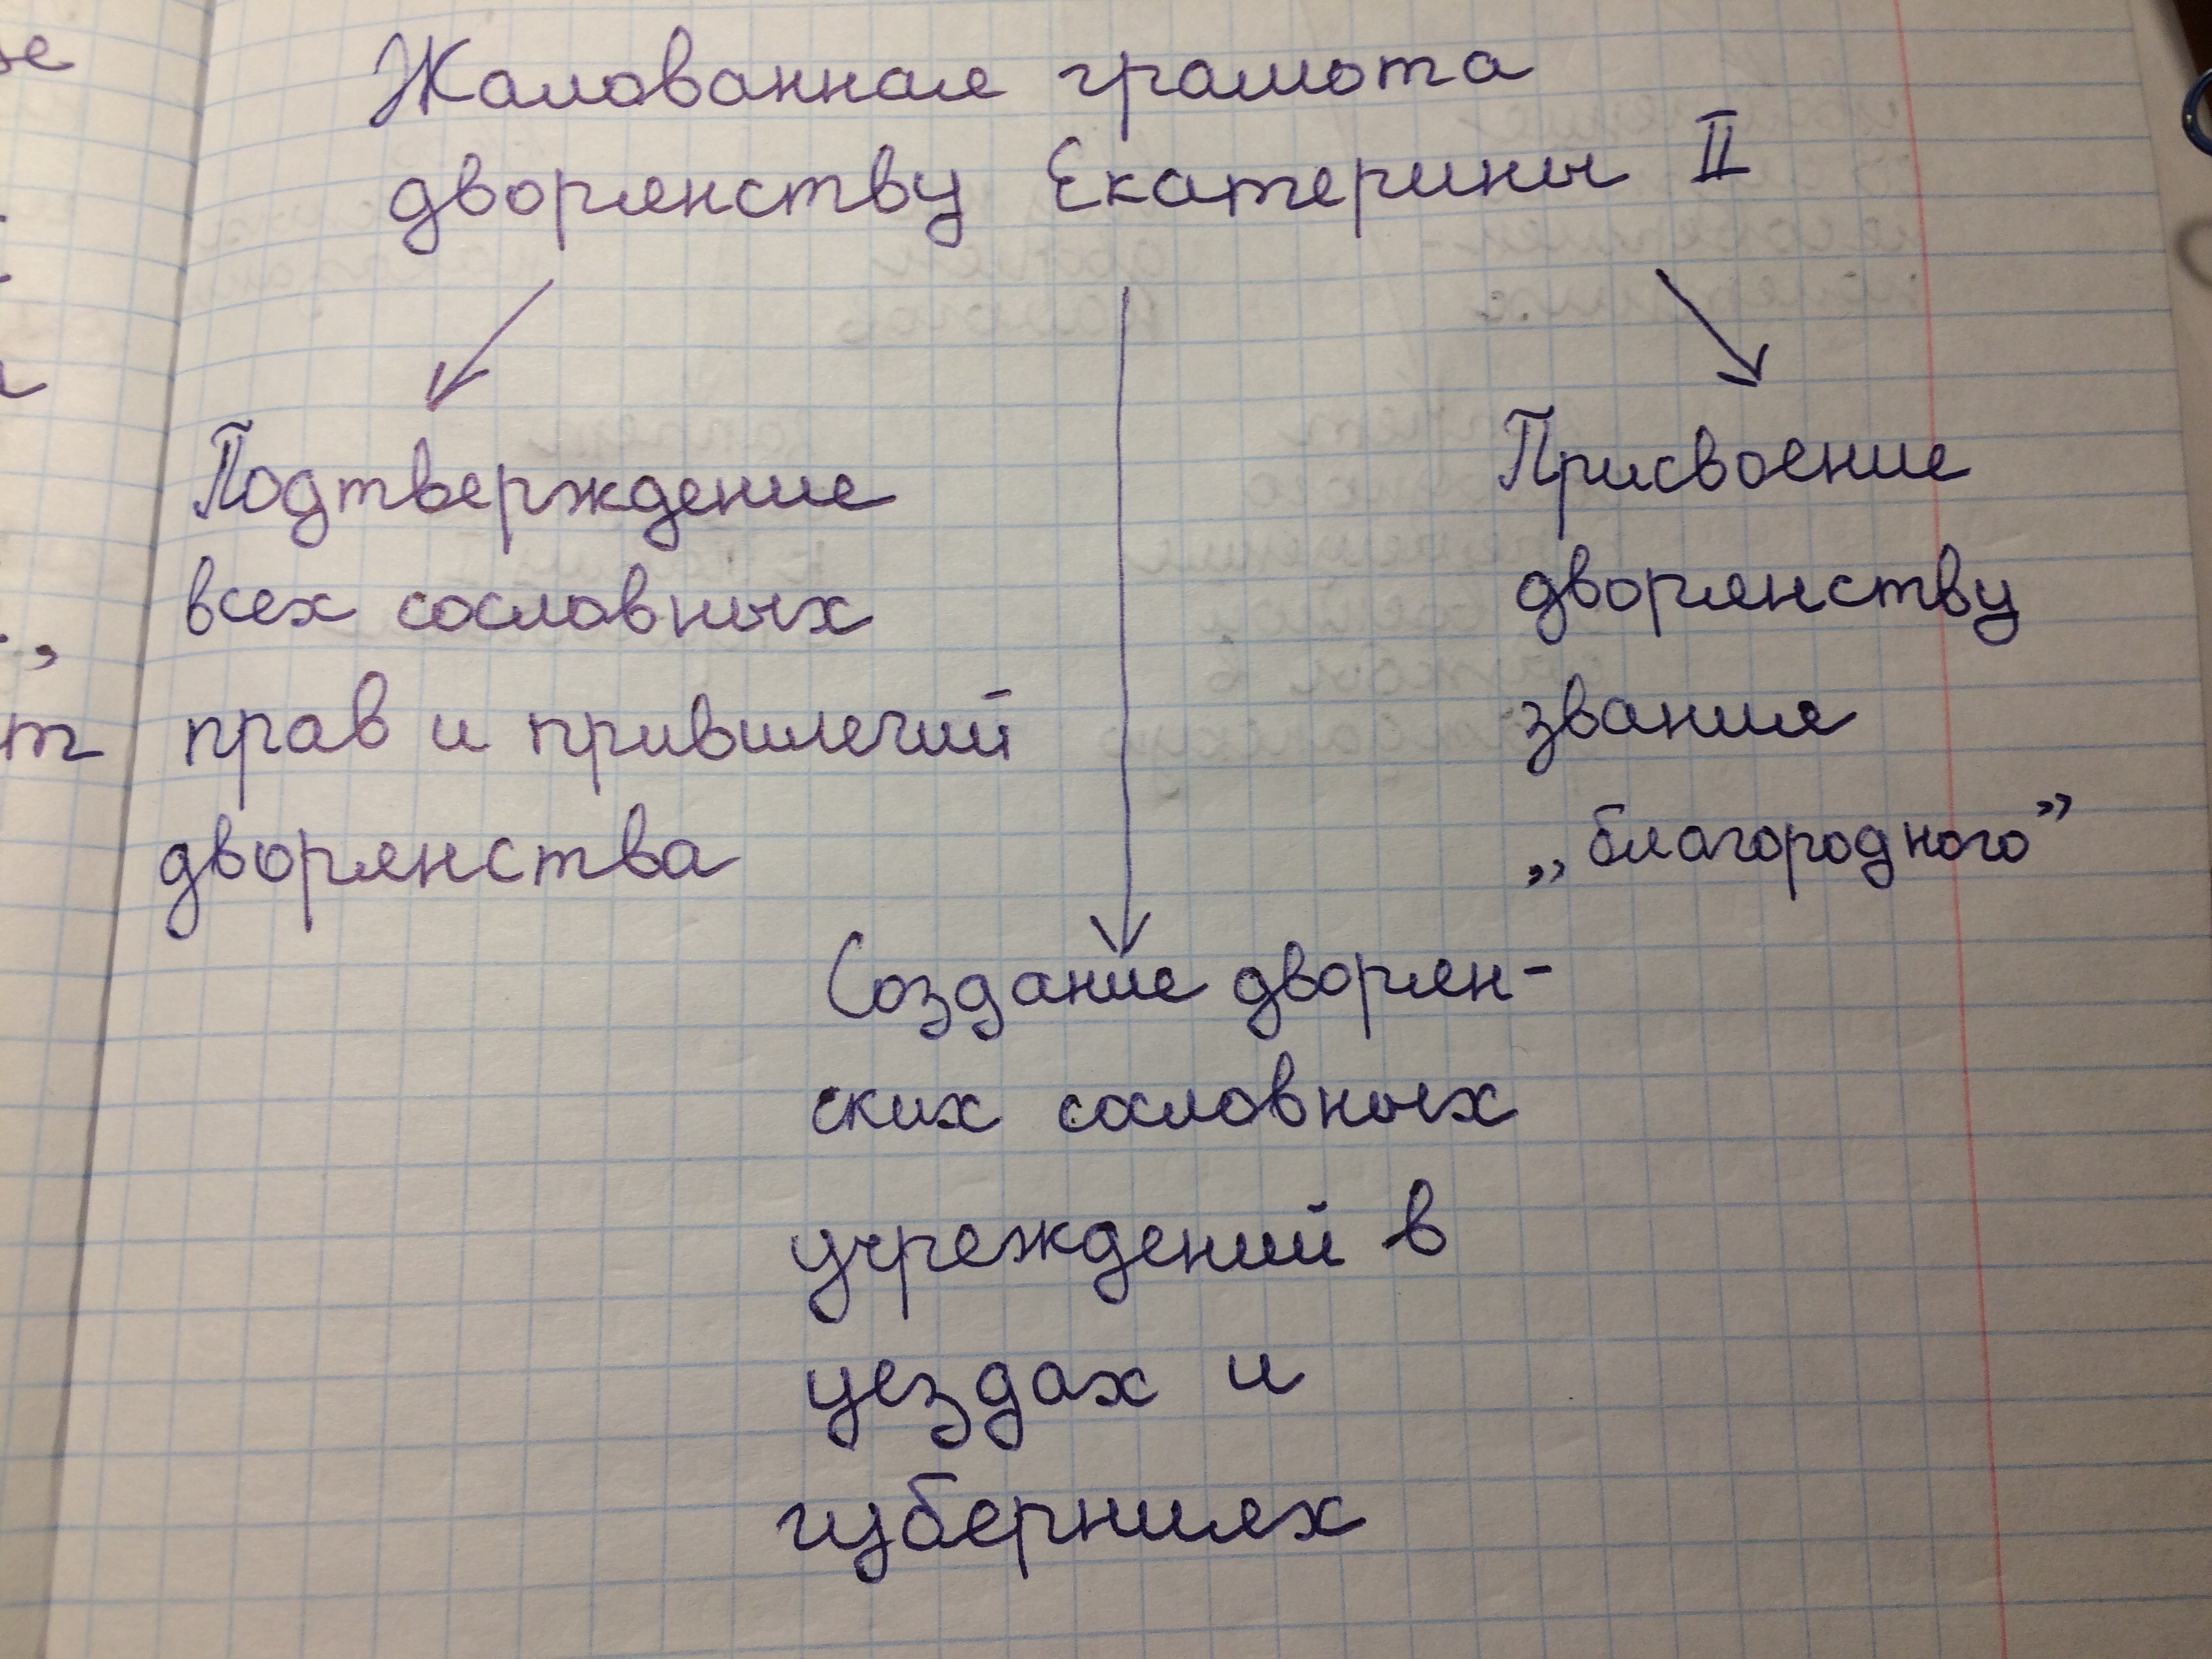 Жалованная грамота
дворянству Екатерины II
Подтверждение
всех сословных
прав и привилегий
дворянства
Присвоение
дворянству
звания
„благородного”
Создание дворян-
ских сословных
учреждений в
уездах и
губерниях